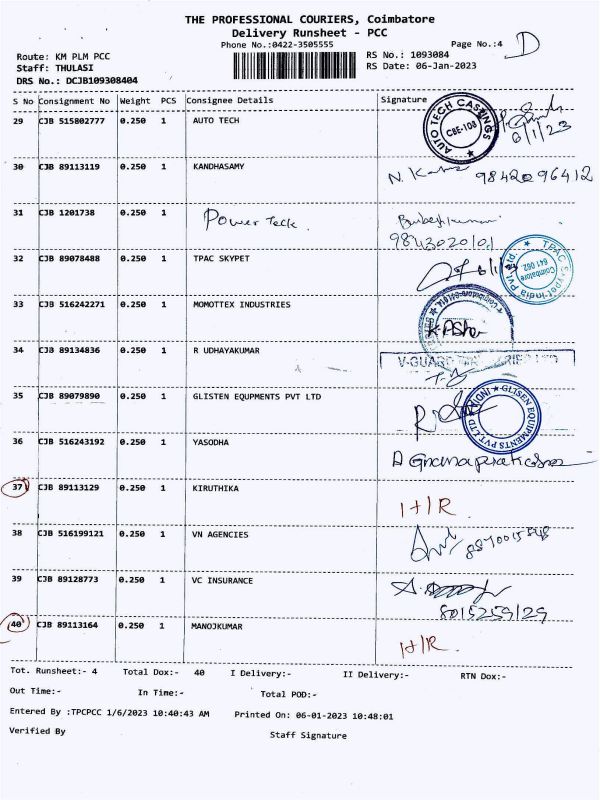 THE PROFESSIONAL COURIERS, Coimbatore
Delivery Runsheet - PCC
Phone No.:0422-3505555
Page No.:4 D
Route: KM PLM PCC
RS No.: 1093084
Staff: THULASI
RS Date: 06-Jan-2023
DRS No.: DCJB109308404
S No Consignment No Weight PCS Consignee Details Signature
29 CJB 515802777 0.250 1 AUTO TECH
AUTO TECH CASTINGS
CBE-108
6/1/23
30 CJB 89113119 0.250 1 KANDHASAMY
9842096412
31 CJB 1201738 0.250 1 Power Teck.
9843020101
32 CJB 89078488 0.250 1 TPAC SKYPET
Coimbatore
641 062
33 CJB 516242271 0.250 1 MOMOTTEX INDUSTRIES
34 CJB 89134836 0.250 1 R UDHAYAKUMAR
V-GUARD
35 CJB 89079890 0.250 1 GLISTEN EQUPMENTS PVT LTD
GLISEN EQUIPMENTS PVT.LTD
36 CJB 516243192 0.250 1 YASODHA
37 CJB 89113129 0.250 1 KIRUTHIKA
I+/R
38 CJB 516199121 0.250 1 VN AGENCIES
39 CJB 89128773 0.250 1 VC INSURANCE
8015259129
40 CJB 89113164 0.250 1 MANOJKUMAR
I+/R.
Tot. Runsheet:- 4 Total Dox:- 40 I Delivery:- II Delivery:- RTN Dox:-
Out Time:- In Time:- Total POD:-
Entered By :TPCPCC 1/6/2023 10:40:43 AM Printed On: 06-01-2023 10:48:01
Verified By Staff Signature